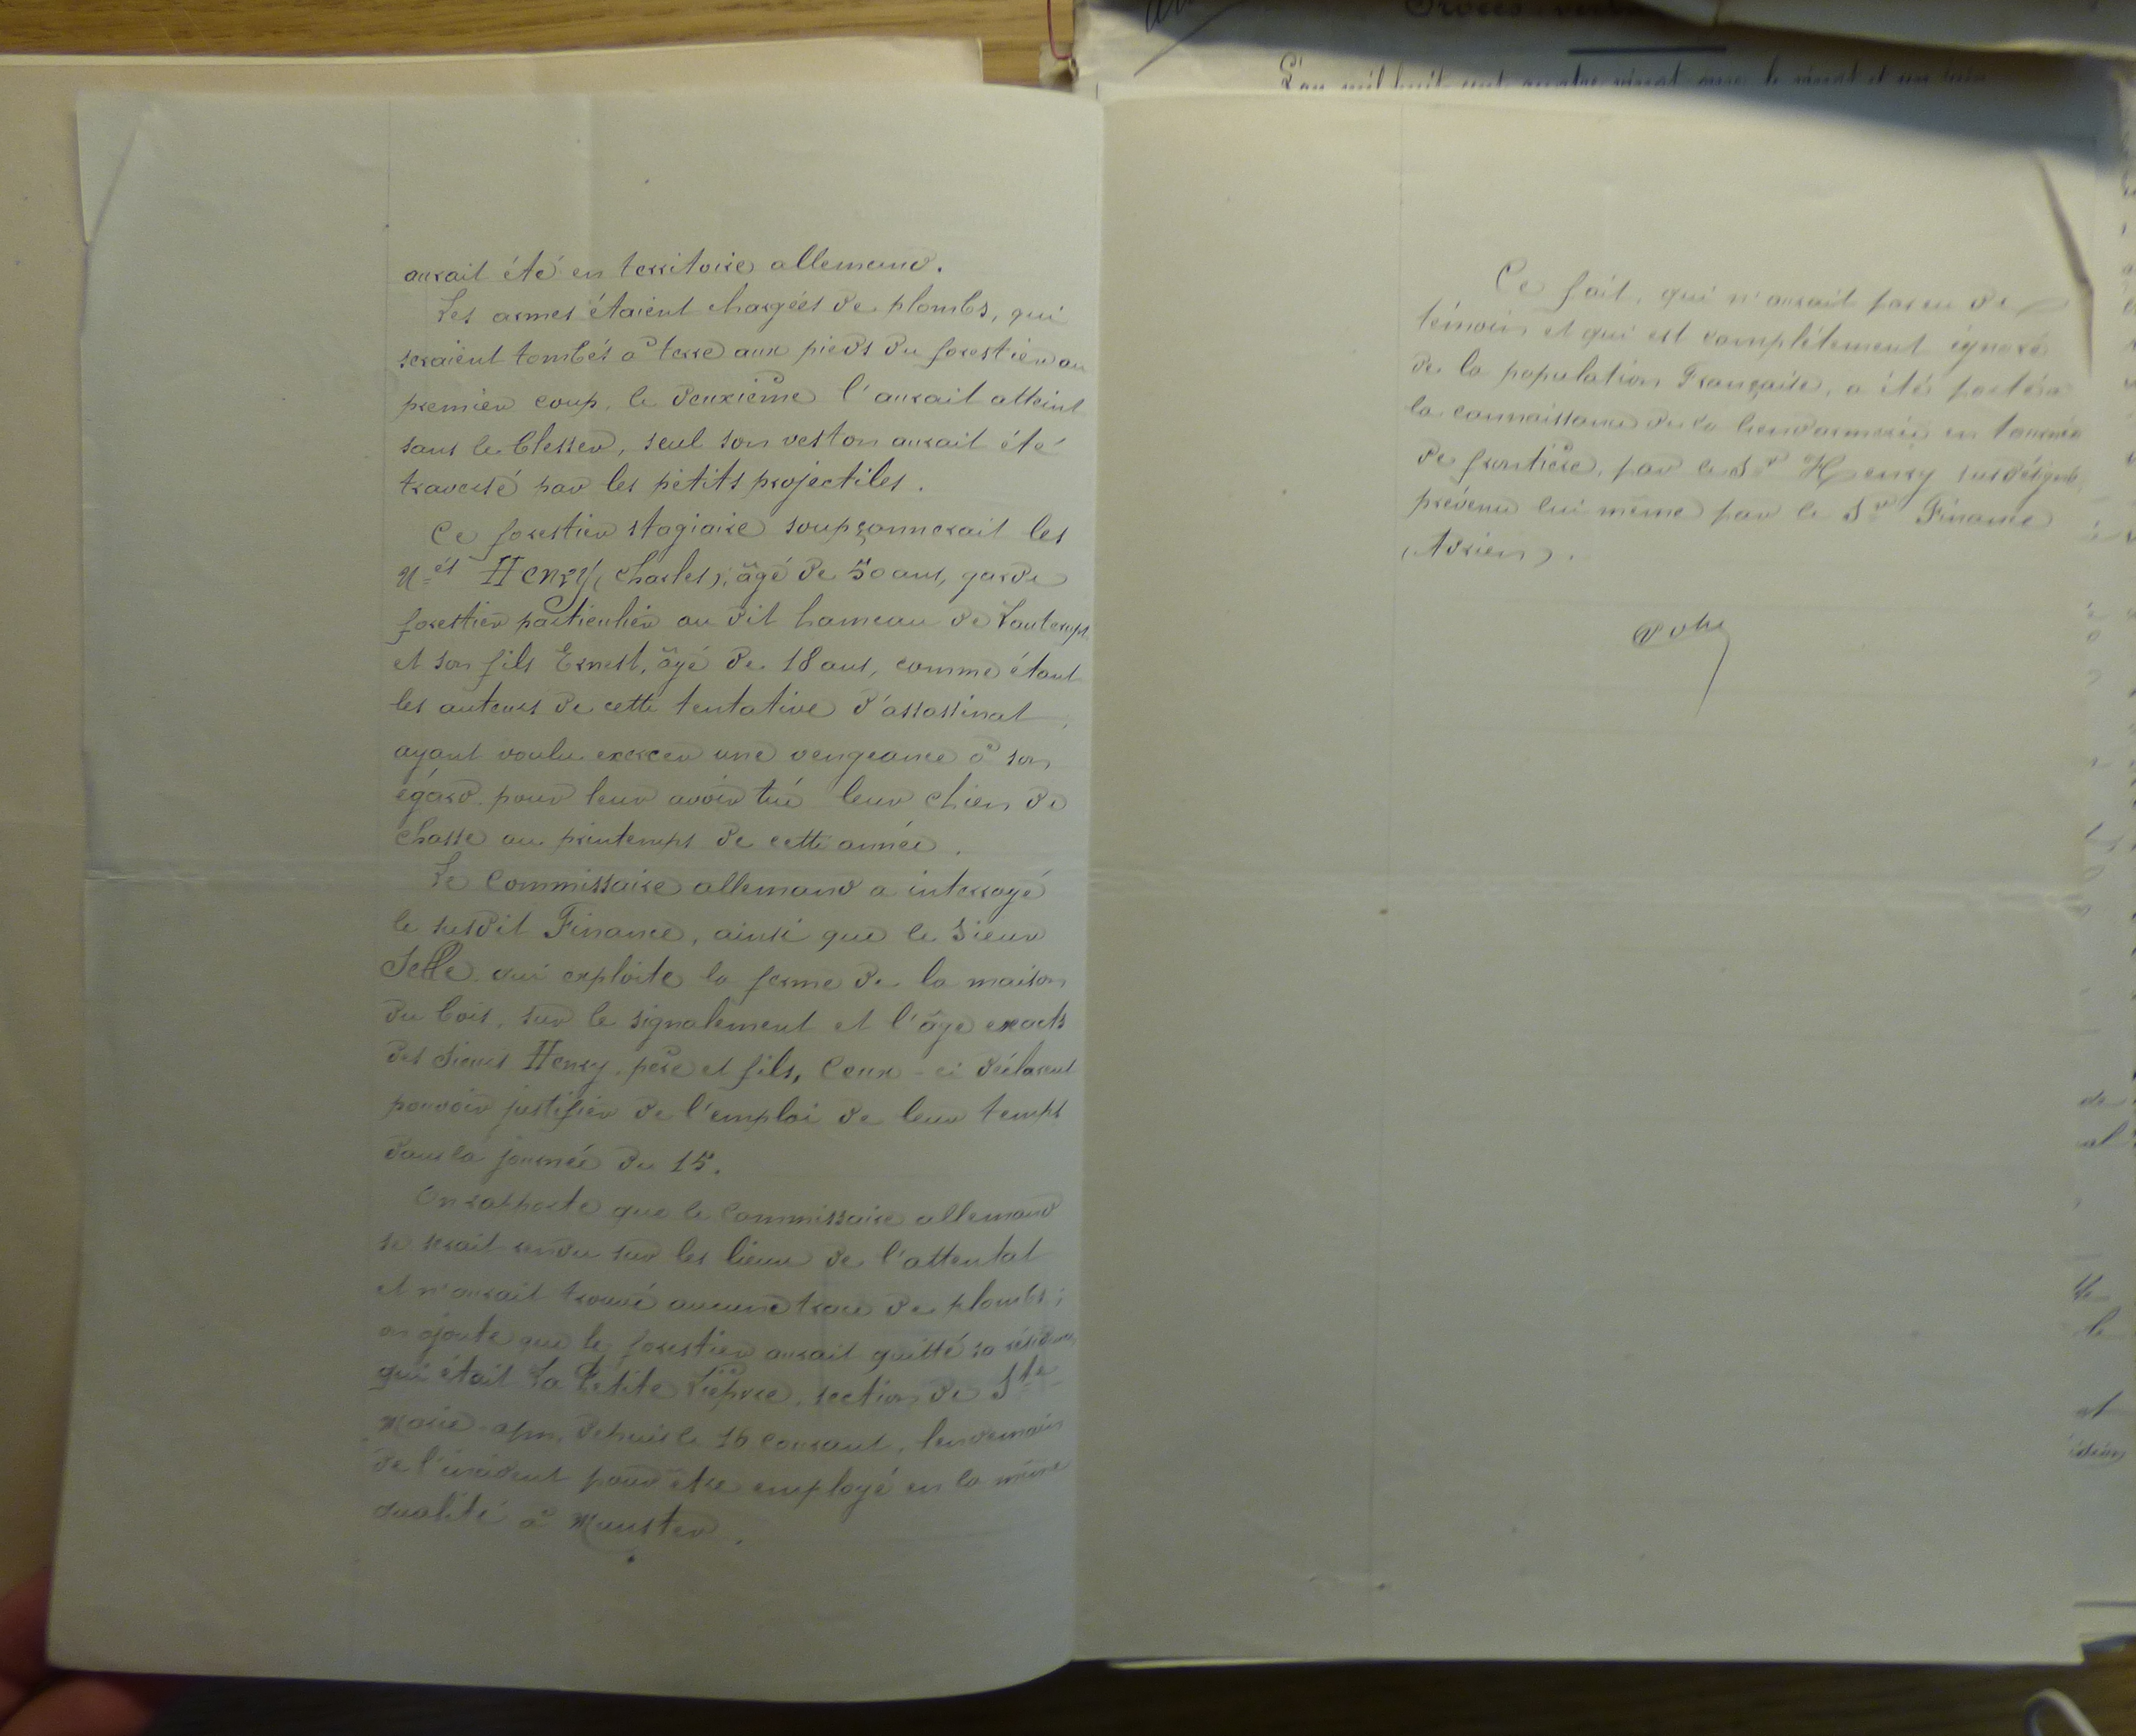 aurait été en territoire allemand.
Les armes étaient chargées de plombs, qui
seraient tombés à terre aux pieds du forestier au
premier coup, le deuxième l'aurait atteint
sans le blesser, seul son veston aurait été
traversé par les petits projectiles.
Ce forestier stagiaire soupçonnerait les
N=és Henry (Charles), âgé de 50 ans, garde
forestier particulier au dit hameau de
et son fils Ernest, âgé de 18 ans, comme étant
les auteurs de cette tentative d'assassinat,
ayant voulu exercer une vengeance à son
égard pour leur avoir tué leur chien de
chasse au printemps de cette année.
Le Commissaire allemand a interrogé
le susdit Finance, ainsi que le sieur
Selle qui exploite la ferme de la maison
du bois, sur le signalement et l'âge exacts
des sieurs Henry, père et fils, Ceux-ci déclarent
pouvoir justifier de l'emploi de leur temps
dans la journée du 15.
On rapporte que le Commissaire allemand
se serait rendu sur les lieux de l'attentat
et n'aurait trouvé aucune trace de plombs;
on ajoute que le forestier aurait quitté sa résidence,
qui était La Petite Lièpvre, section de Ste
Marie-a/m, depuis le 16 courant, lendemain
de l'incident pour être employé en la même
qualité à Munster.
Ce fait, qui n'aurait pas eu de
témoin et qui est complètement ignoré
de la population Française, a été porté à
la connaissance de la Gendarmerie en tournée
de frontière, par le Sr Henry susdésigné,
prévenu lui même par le Sr Finance
(Adrien).
L'an mil huit cent quatre vingt onze le vingt et un